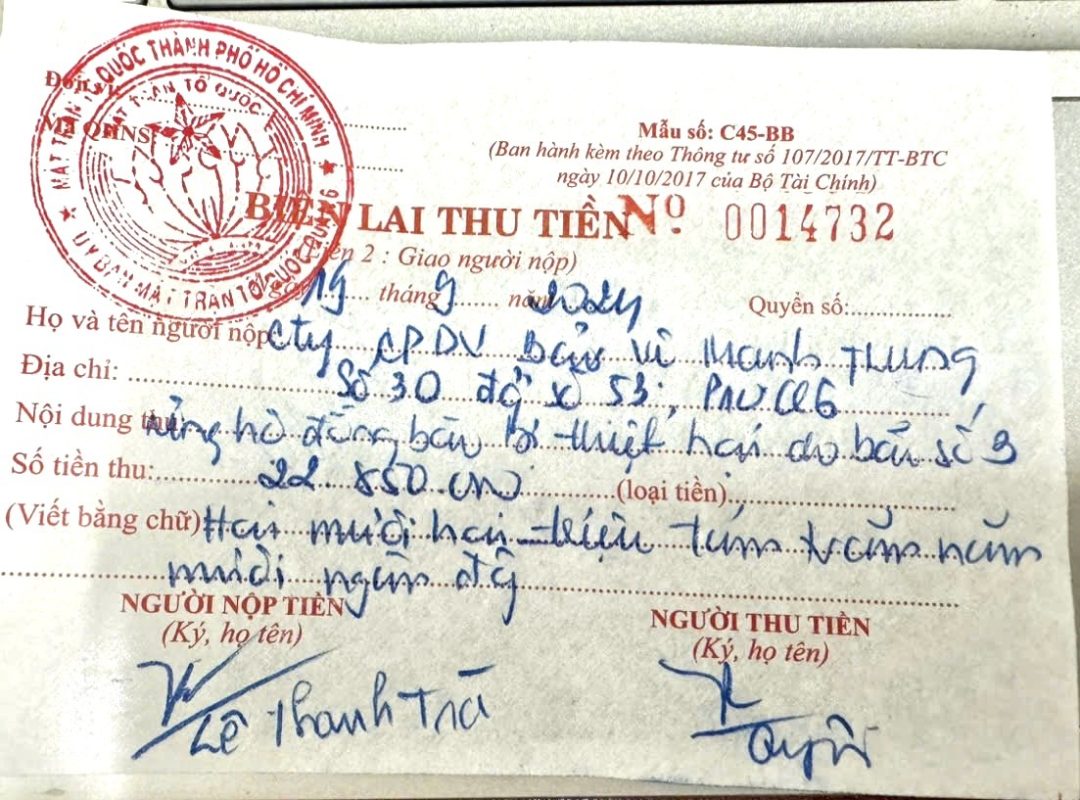 MẶT TRẬN TỔ QUỐC THÀNH PHỐ HỒ CHÍ MINH
ỦY BAN MẶT TRẬN TỔ QUỐC QUẬN 6
MẶT TRẬN TỔ QUỐC
Đơn vị
Mã QHNS
Mẫu số: C45-BB
(Ban hành kèm theo Thông tư số 107/2017/TT-BTC
ngày 10/10/2017 của Bộ Tài Chính)
BIÊN LAI THU TIỀN Nº 0014732
(Liên 2 : Giao người nộp)
Ngày 19 tháng 9 năm 2024 Quyển số:
Họ và tên người nộp Cty CPDV Bảo vệ Thanh Tùng
Địa chỉ: Số 30 đg số 53, P10 Q6
Nội dung thu ủng hộ đồng bào bị thiệt hại do bão số 3
Số tiền thu: 22 850 000 (loại tiền)
(Viết bằng chữ) Hai mươi hai triệu tám trăm năm
mươi ngàn đg
NGƯỜI NỘP TIỀN
(Ký, họ tên)
NGƯỜI THU TIỀN
(Ký, họ tên)
Lê Thanh Trà